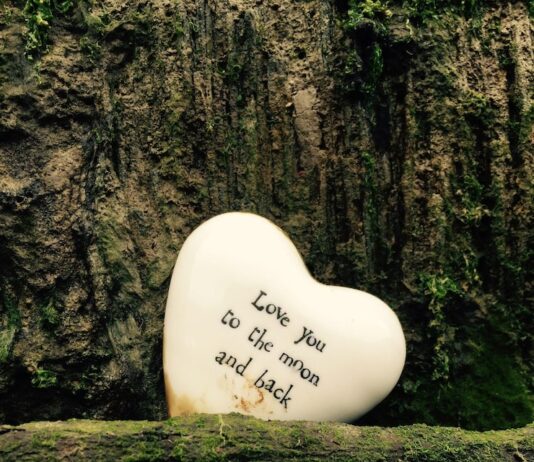 Love you
to the moon
and back